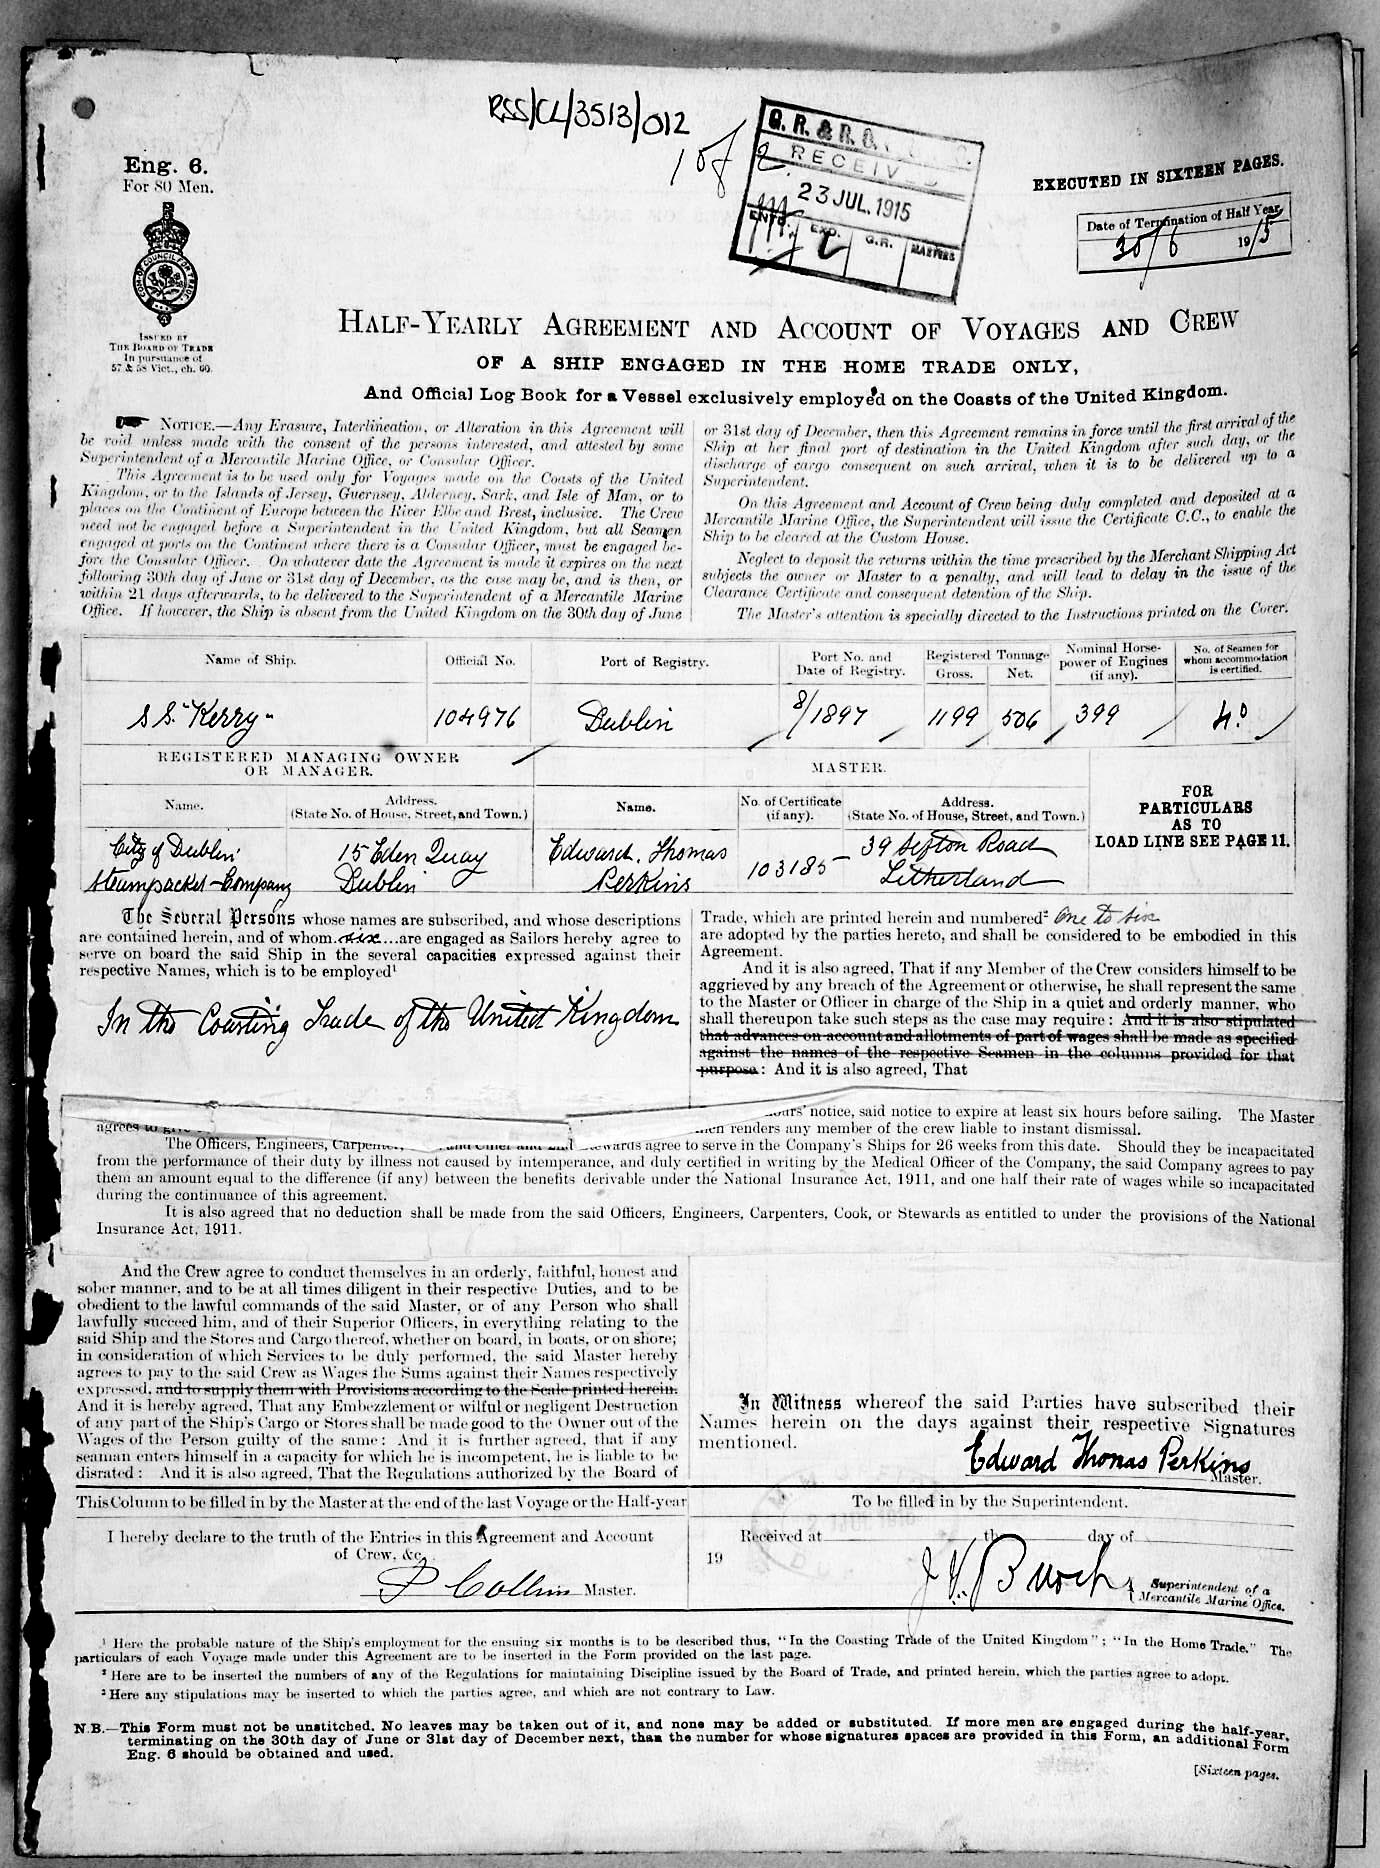 RSS/CL/3513/012
1 of 2
G. R. & R. G.
RECEIVED
23 JUL. 1915
ENTD. EXD. G.R. MASTERS
Eng. 6.
For 80 Men.
COM. OF COUNCIL FOR TRADE
ISSUED BY
THE BOARD OF TRADE
In pursuance of
57 & 58 Vict., ch. 60.
EXECUTED IN SIXTEEN PAGES.
Date of Termination of Half Year
30/6 1915
HALF-YEARLY AGREEMENT AND ACCOUNT OF VOYAGES AND CREW
OF A SHIP ENGAGED IN THE HOME TRADE ONLY,
And Official Log Book for a Vessel exclusively employed on the Coasts of the United Kingdom.
NOTICE.—Any Erasure, Interlineation, or Alteration in this Agreement will
be void unless made with the consent of the persons interested, and attested by some
Superintendent of a Mercantile Marine Office, or Consular Officer.
This Agreement is to be used only for Voyages made on the Coasts of the United
Kingdom, or to the Islands of Jersey, Guernsey, Alderney, Sark, and Isle of Man, or to
places on the Continent of Europe between the River Elbe and Brest, inclusive. The Crew
need not be engaged before a Superintendent in the United Kingdom, but all Seamen
engaged at ports on the Continent where there is a Consular Officer, must be engaged be-
fore the Consular Officer. On whatever date the Agreement is made it expires on the next
following 30th day of June or 31st day of December, as the case may be, and is then, or
within 21 days afterwards, to be delivered to the Superintendent of a Mercantile Marine
Office. If however, the Ship is absent from the United Kingdom on the 30th day of June
or 31st day of December, then this Agreement remains in force until the first arrival of the
Ship at her final port of destination in the United Kingdom after such day, or the
discharge of cargo consequent on such arrival, when it is to be delivered up to a
Superintendent.
On this Agreement and Account of Crew being duly completed and deposited at a
Mercantile Marine Office, the Superintendent will issue the Certificate C.C., to enable the
Ship to be cleared at the Custom House.
Neglect to deposit the returns within the time prescribed by the Merchant Shipping Act
subjects the owner or Master to a penalty, and will lead to delay in the issue of the
Clearance Certificate and consequent detention of the Ship.
The Master's attention is specially directed to the Instructions printed on the Cover.
Name of Ship. Official No. Port of Registry. Port No. and Date of Registry. Registered Tonnage Gross. Net. Nominal Horse-power of Engines (if any). No. of Seamen for whom accommodation is certified.
S S. "Kerry" 104976 Dublin 8/1897 1199 506 399 40
REGISTERED MANAGING OWNER
OR MANAGER.
MASTER.
Name. Address. (State No. of House, Street, and Town.) Name. No. of Certificate (if any). Address. (State No. of House, Street, and Town.)
City of Dublin 15 Eden Quay Edward Thomas 103185 39 Sefton Road
Steampacket Company Dublin Perkins Litherland
FOR
PARTICULARS
AS TO
LOAD LINE SEE PAGE 11.
The Several Persons whose names are subscribed, and whose descriptions
are contained herein, and of whom six are engaged as Sailors hereby agree to
serve on board the said Ship in the several capacities expressed against their
respective Names, which is to be employed¹
In the Coasting Trade of the United Kingdom
Trade, which are printed herein and numbered² One to six
are adopted by the parties hereto, and shall be considered to be embodied in this
Agreement.
And it is also agreed, That if any Member of the Crew considers himself to be
aggrieved by any breach of the Agreement or otherwise, he shall represent the same
to the Master or Officer in charge of the Ship in a quiet and orderly manner, who
shall thereupon take such steps as the case may require: And it is also stipulated
that advances on account and allotments of part of wages shall be made as specified
against the names of the respective Seamen in the columns provided for that
purpose: And it is also agreed, That
hours' notice, said notice to expire at least six hours before sailing. The Master
agrees to give renders any member of the crew liable to instant dismissal.
The Officers, Engineers, Carpenter, and Chief and 2nd Stewards agree to serve in the Company's Ships for 26 weeks from this date. Should they be incapacitated
from the performance of their duty by illness not caused by intemperance, and duly certified in writing by the Medical Officer of the Company, the said Company agrees to pay
them an amount equal to the difference (if any) between the benefits derivable under the National Insurance Act, 1911, and one half their rate of wages while so incapacitated
during the continuance of this agreement.
It is also agreed that no deduction shall be made from the said Officers, Engineers, Carpenters, Cook, or Stewards as entitled to under the provisions of the National
Insurance Act, 1911.
And the Crew agree to conduct themselves in an orderly, faithful, honest and
sober manner, and to be at all times diligent in their respective Duties, and to be
obedient to the lawful commands of the said Master, or of any Person who shall
lawfully succeed him, and of their Superior Officers, in everything relating to the
said Ship and the Stores and Cargo thereof, whether on board, in boats, or on shore;
in consideration of which Services to be duly performed, the said Master hereby
agrees to pay to the said Crew as Wages the Sums against their Names respectively
expressed, and to supply them with Provisions according to the Scale printed herein.
And it is hereby agreed, That any Embezzlement or wilful or negligent Destruction
of any part of the Ship's Cargo or Stores shall be made good to the Owner out of the
Wages of the Person guilty of the same: And it is further agreed, that if any
seaman enters himself in a capacity for which he is incompetent, he is liable to be
disrated: And it is also agreed, That the Regulations authorized by the Board of
In Witness whereof the said Parties have subscribed their
Names herein on the days against their respective Signatures
mentioned.
Edward Thomas Perkins
Master.
This Column to be filled in by the Master at the end of the last Voyage or the Half-year
I hereby declare to the truth of the Entries in this Agreement and Account
of Crew, &c.
P Collins Master.
To be filled in by the Superintendent.
Received at th day of
19
Superintendent of a
Mercantile Marine Office.
¹ Here the probable nature of the Ship's employment for the ensuing six months is to be described thus, "In the Coasting Trade of the United Kingdom"; "In the Home Trade." The
particulars of each Voyage made under this Agreement are to be inserted in the Form provided on the last page.
² Here are to be inserted the numbers of any of the Regulations for maintaining Discipline issued by the Board of Trade, and printed herein, which the parties agree to adopt.
³ Here any stipulations may be inserted to which the parties agree, and which are not contrary to Law.
N.B.—This Form must not be unstitched. No leaves may be taken out of it, and none may be added or substituted. If more men are engaged during the half-year,
terminating on the 30th day of June or 31st day of December next, than the number for whose signatures spaces are provided in this Form, an additional Form
Eng. 6 should be obtained and used.
[Sixteen pages.